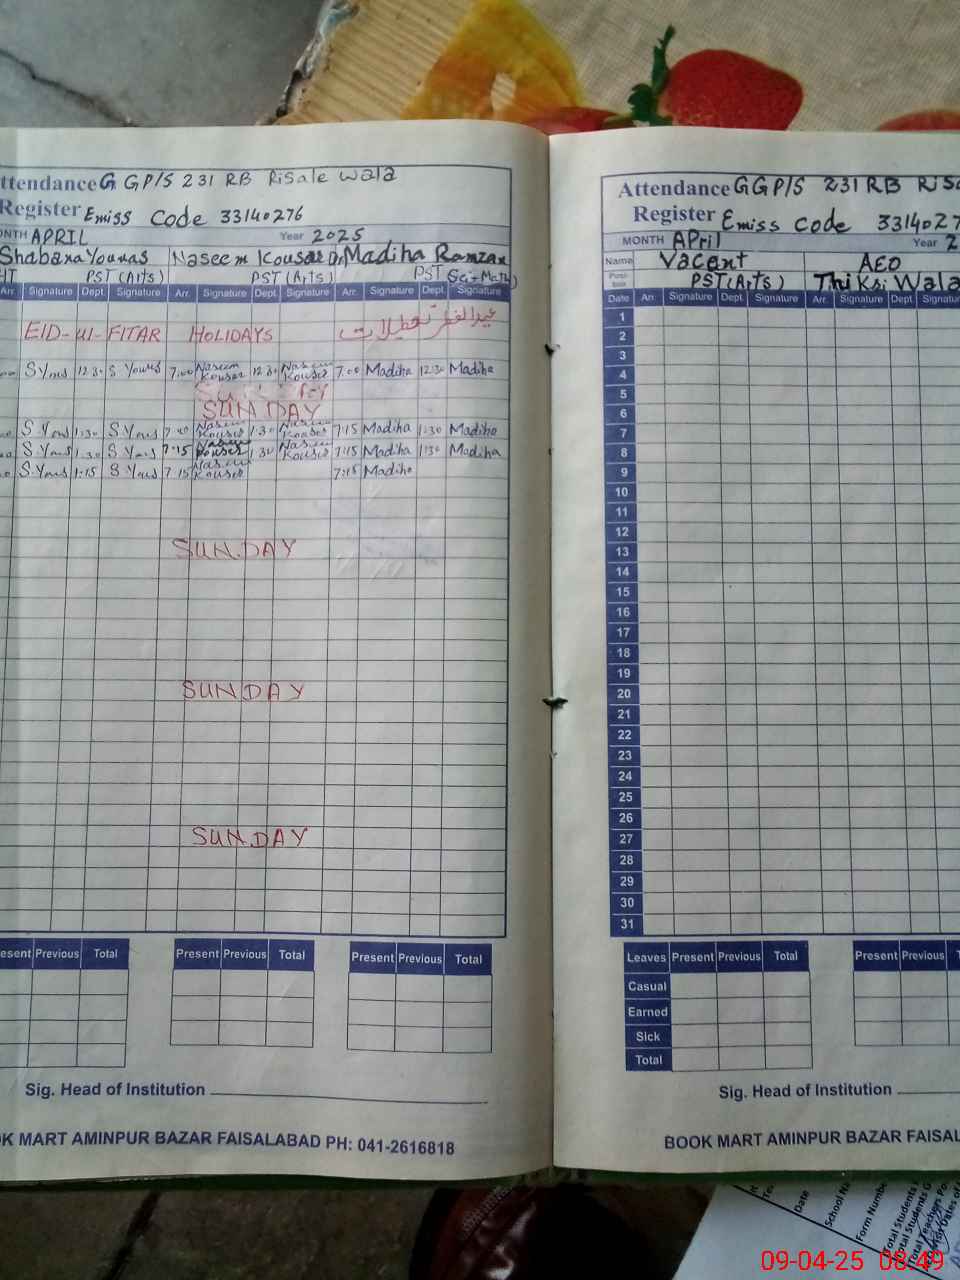 ttendance G GP/S 231 RB Risale wala
Register Emiss Code 33140276
ONTH APRIL Year 2025
Shabana Younas Naseem Kousar Madiha Ramzan
HT PST (Arts) PST (Arts) PST (Sci-Math)
Arr. Signature Dept. Signature Arr. Signature Dept. Signature Arr. Signature Dept. Signature
EID-ul-FITAR HOLIDAYS عیدالفطر تعطیلات
S Youns 12:30 S Youns 7:00 Naseem Kouser 12:30 Naseem Kouser 7:00 Madiha 12:30 Madiha
SUNDAY
S Youns 1:30 S Youns Naseem Kouser 1:30 Naseem Kouser 7:15 Madiha 1:30 Madiha
S. Youns 1:30 S Youns 7:15 Naseem Kouser 1:30 Naseem Kouser 7:15 Madiha 1:30 Madiha
S. Youns 1:15 S Youns 7:15 Naseem Kouser 7:15 Madiha
SUNDAY
SUNDAY
SUNDAY
resent Previous Total Present Previous Total Present Previous Total
Sig. Head of Institution
OK MART AMINPUR BAZAR FAISALABAD PH: 041-2616818
Attendance GGP/S 231 RB Ris
Register Emiss Code 3314027
MONTH APril Year 2
Name Vacent AEO
Posi-tion PST(Arts) Thi Kri Wala
Date Arr. Signature Dept. Signature Arr. Signature Dept. Signatur
1
2
3
4
5
6
7
8
9
10
11
12
13
14
15
16
17
18
19
20
21
22
23
24
25
26
27
28
29
30
31
Leaves Present Previous Total Present Previous
Casual
Earned
Sick
Total
Sig. Head of Institution
BOOK MART AMINPUR BAZAR FAISAL
Date
School Na
Form Number
Total Students
Total Students G
Total Teachers Po
09-04-25 08:49